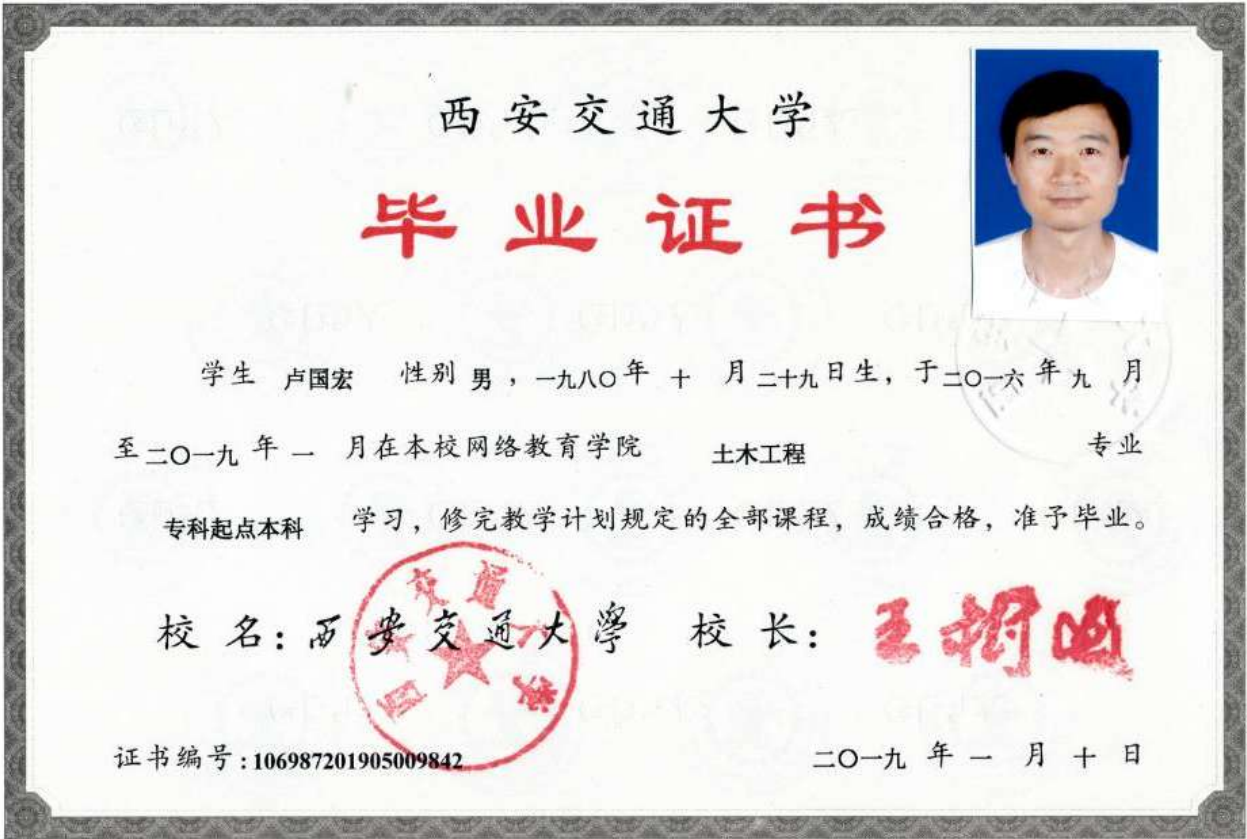 西安交通大学
毕业证书
学生 卢国宏 性别 男，一九八〇年 十 月二十九日生，于二〇一六年 九 月
至二〇一九年 一 月在本校网络教育学院 土木工程 专业
专科起点本科 学习，修完教学计划规定的全部课程，成绩合格，准予毕业。
校 名：西安交通大學 校 长：王树国
西安交通大学
证书编号：106987201905009842 二〇一九 年 一 月 十 日